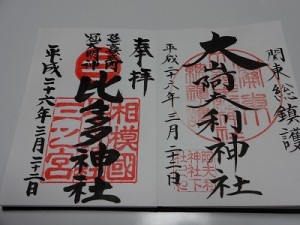 関東総鎮護
大山阿夫利神社
平成二十六年三月二十二日
奉拝
比々多神社
相模國
三之宮
平成二十六年三月二十二日